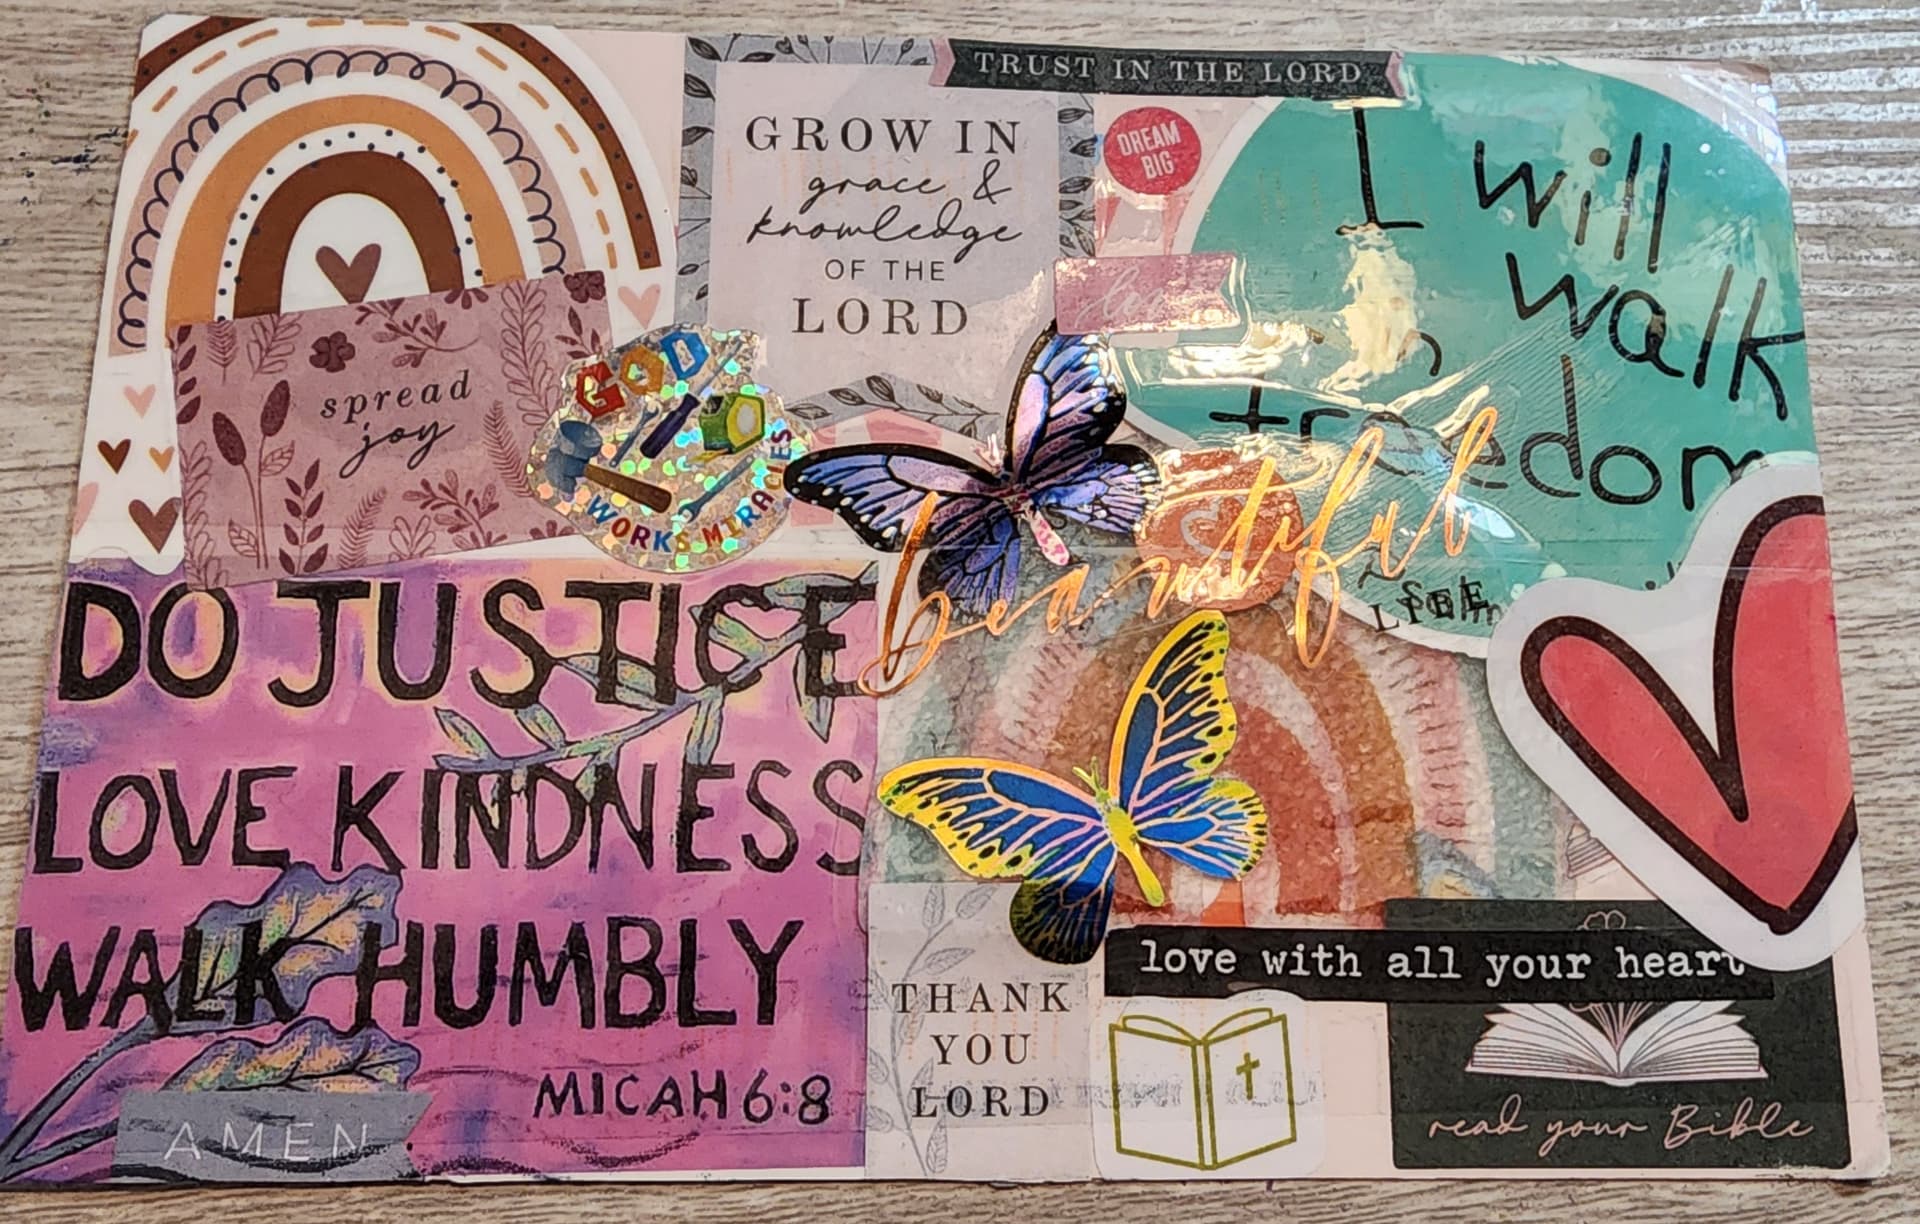 TRUST IN THE LORD
GROW IN
grace &
knowledge
OF THE
LORD
DREAM
BIG
I will
walk
freedom
spread
joy
GOD
WORKS MIRACLES
beautiful
DO JUSTICE
LOVE KINDNESS
WALK HUMBLY
MICAH 6:8
AMEN
THANK
YOU
LORD
love with all your heart
read your Bible